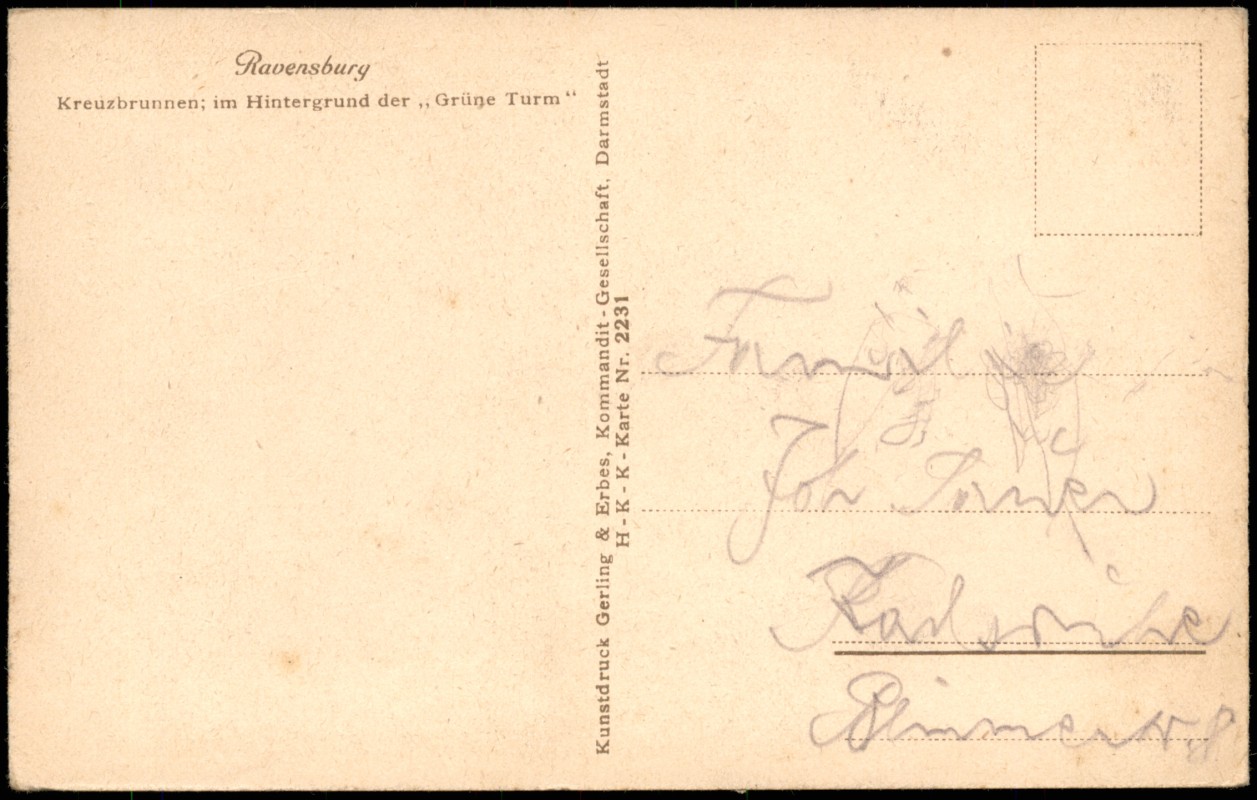 Ravensburg
Kreuzbrunnen; im Hintergrund der „Grüne Turm“
Kunstdruck Gerling & Erbes, Kommandit-Gesellschaft, Darmstadt
H-K-K-Karte Nr. 2231
Familie
Joh
Karlsruhe